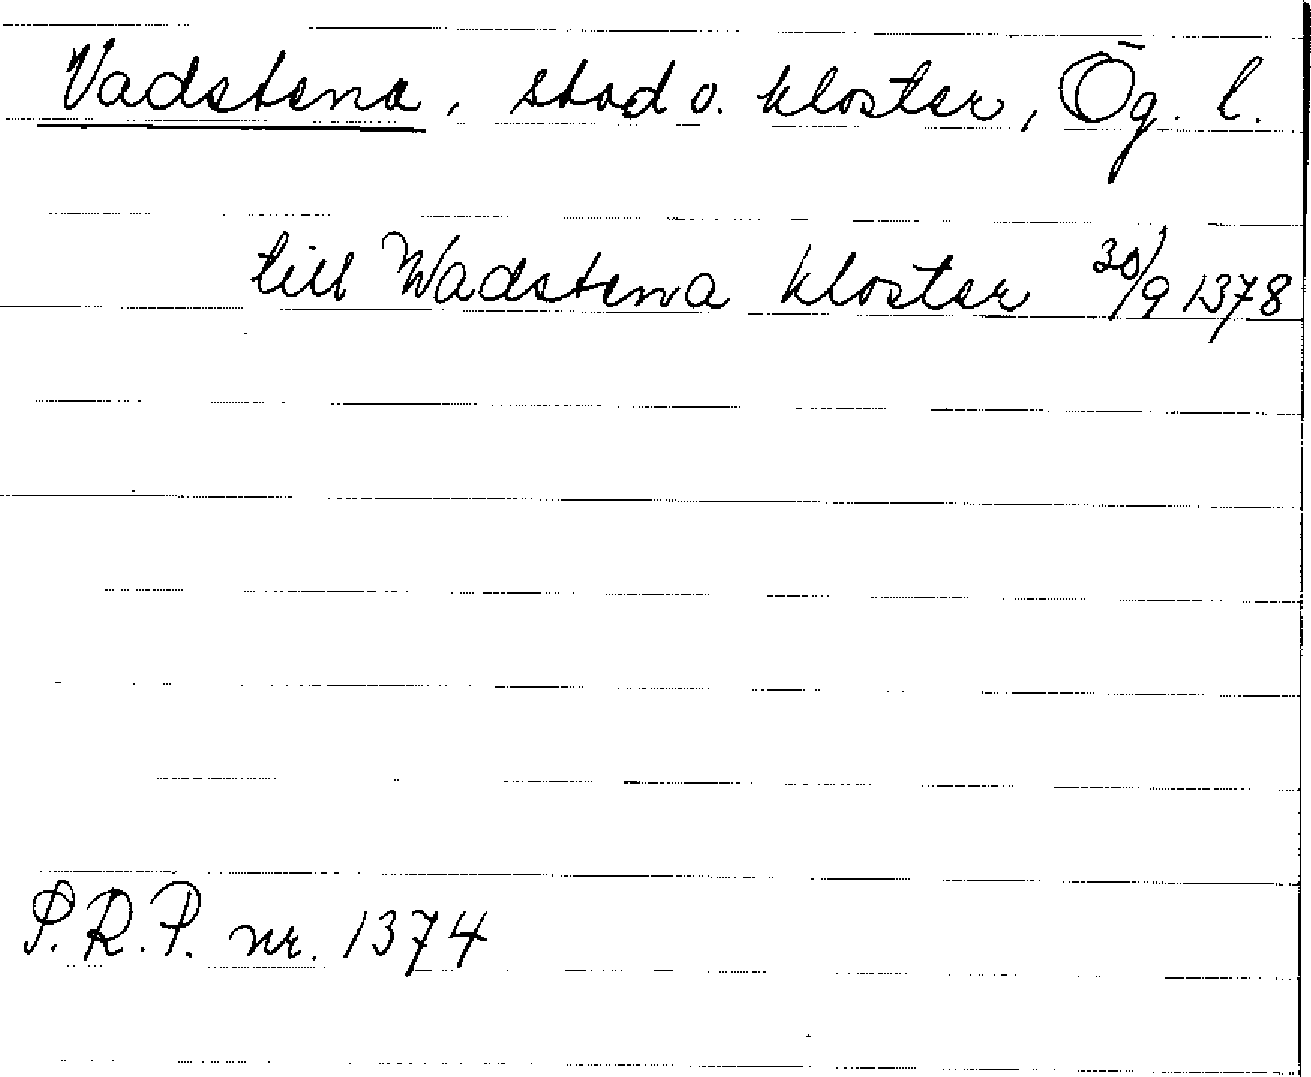 Vadstena, stad o. kloster, Ög. l.
till Wadstena kloster 30/9 1378
S.R.P. nr. 1374